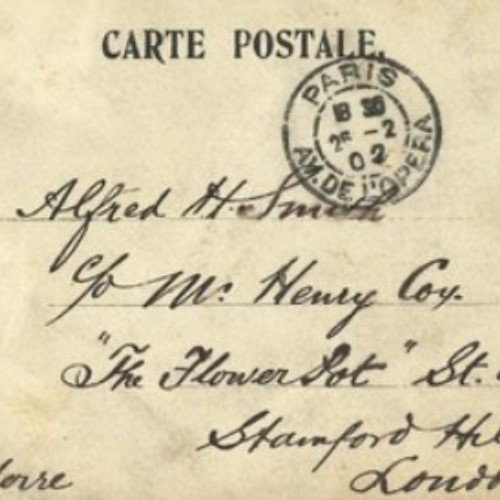 CARTE POSTALE.
PARIS
18 30
25 -2
02
AV. DE L'OPERA
Alfred H. Smith
c/o Mr. Henry Cox.
"The Flower Pot" St.
Stamford Hil
Londo